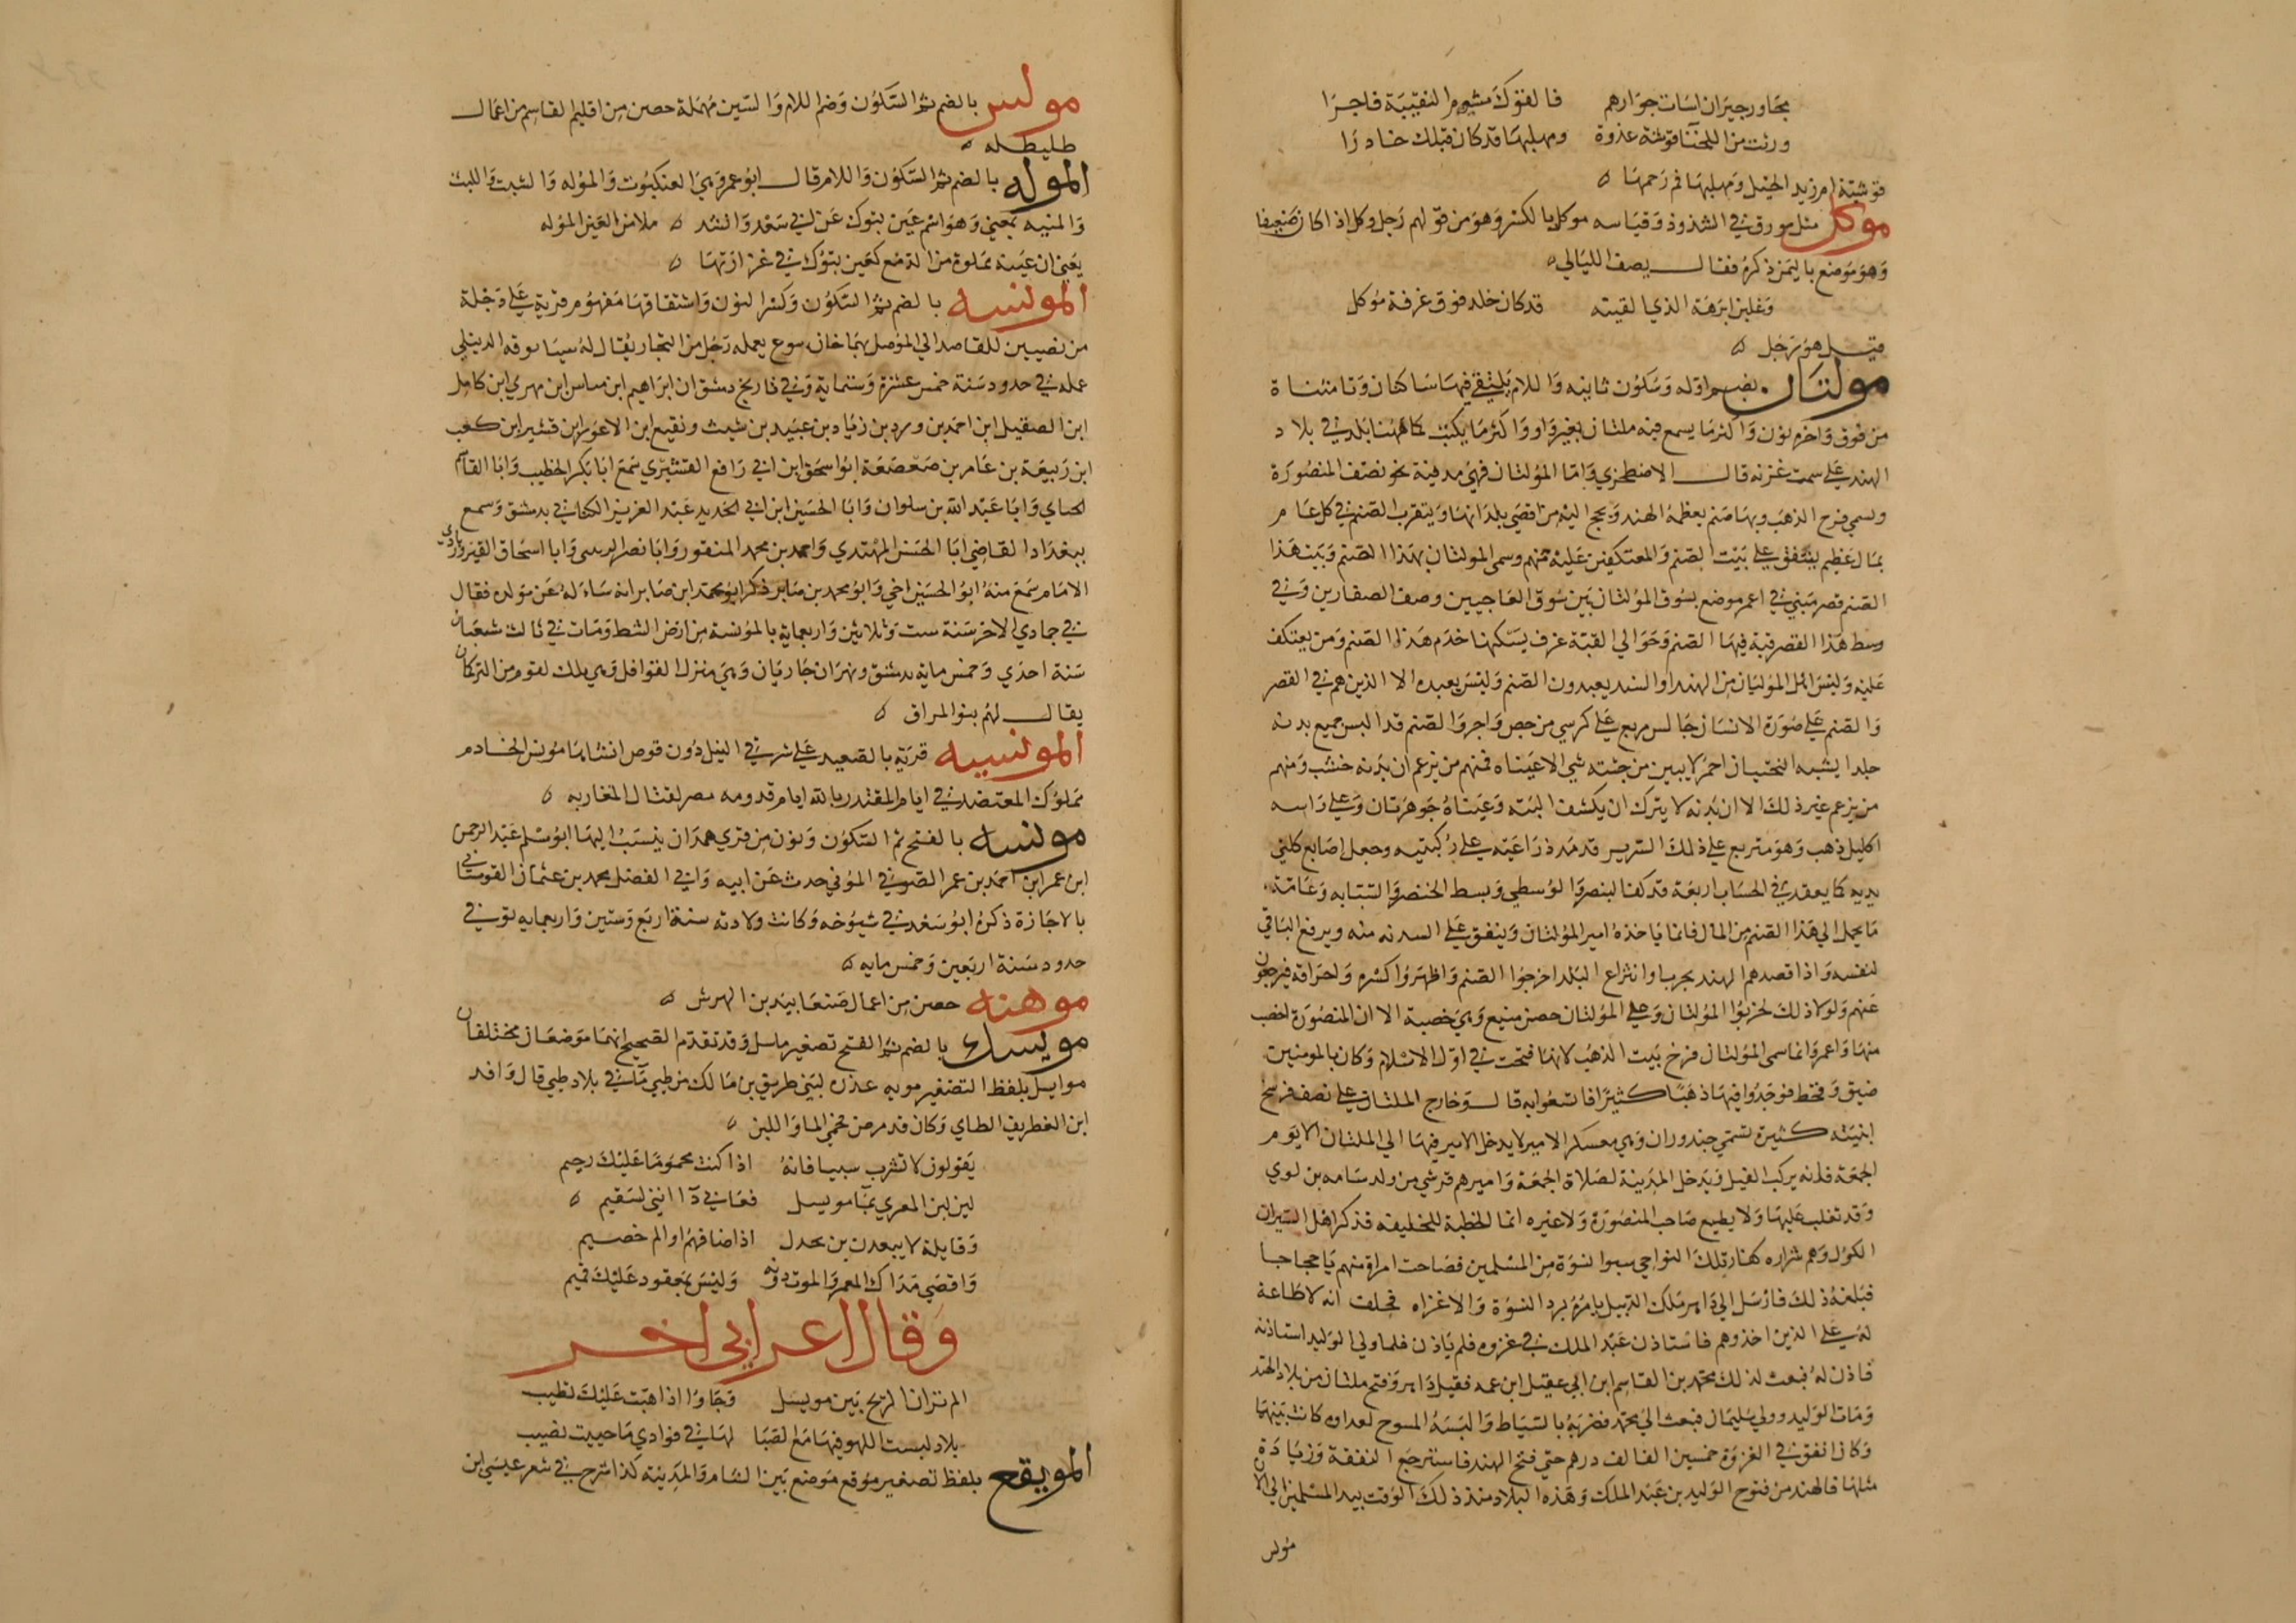 بحَاور جيرَان اسَات جوَارهم فالفوك مشوم النقيبة فاجرَا
ورثت من اللخنا قوشة غدرة ومهبلها قد كان قبلك خادرَا
قوشة ام زيد الخيل ومهبلها فم رَحمهَا ه
موكل مثل مورق في الشذوذ وَقيَاسه موكل بالكسر وَهوَ من قولهم رَجل وكل اذا كان ضَعيفا
وَهوَ موضع باليمَن ذكره فقال يصف الليَالي ه
وَغلبن ابرَهَة الذي القينه قد كان خلد فوق غرفة مُوكل
قيل هو رَجُل ه
مولتان بضم اوله وَسكون ثانيه وَاللام يلتقي فيهَا سَاكنان وَتا مثناة
من فوق وَاخره نون وَاكثر مَا يسمع فيه ملتان بغير وَاو وَاكثر مَا يكتب كما هَهنا بَلد في بلاد
الهند عَلي سمت غزنه قال الاصطخري وَامّا المؤلتان فهي مدينة نحو نصف المنصُورَة
وتسمي فرج الذهَب وبهَا صَنم يعظمه الهند وَيحج اليه من اقصَي بلدَانهَا وَيتقرب الصَنم في كل عَام
بمَال عَظيم ينفق علي بَيت الصَنم وَالمعتكفين عَليْه منهم وسمي المولتان بهَذا الصَنم وَبَيت هَذا
الصَنم قصر مَبني في اعمر موضع بسُوق المؤلتان بَين سُوق العَاجيين وصف الصفارين وَفي
وسط هَذا القصر قبة فيهَا الصَنم وَحَوَالي القبّة غرف يسكنها خدَم هَذا الصَنم وَمن يعتكف
عَليْه وَليسَ اهل المؤلتان من الهند وَالسند يعبدون الصَنم وَليْسَ يعبده الا الذين هم في القصر
وَالصَنم عَلي صُورَة الانسَان جَالس مربع عَلي كرسي من جص وَاجر وَالصَنم قد البس جميع بدنه
جلدا يشبه السختيان احمر لا يبين من جثته شي الا عَينَاه فمنهم من يزعم ان بَدنه خشب وَمنهم
من يزعم غير ذلكَ الا ان بَدنه لا يترك ان يكشف البَته وَعَينَاهُ جَوهرَتان وَعلي رَاسه
اكليل ذهب وَهوَ متربع علي ذلكَ السَرير قد مَد ذرَاعَيه علي رُكبتيه وجعل اصَابع كلتي
يديه كما يعقد في الحسَاب اربعَة قد كف البنصر وَالوُسطي وَبسط الخنصر وَالسَبّابه وَعَامّة
مَا يحمل الي هَذا الصَنم من المَال فانما يَاخذهُ امير المؤلتان وَينفق عَلي السدنه منه ويرفع البَاقي
لنفسه وَاذا قصدهم الهند بحرب وانتزاع البَلد اخرجوُا الصَنم وَاظهرَوُا كسْره وَاحرَاقه فيرجعُون
عَنهم وَلولا ذلكَ لخربُوا المؤلتان وَعلي المؤلتان حصن منيع وَهيَ خصبة الا ان المنصُورَة اخصب
منهَا وَاعمر وَانما سمي المؤلتان فرج بَيت الذهَب لانهَا فتحت في اوّل الاسْلام وَكان بالمومنين
ضيق وَقحط فوَجَدُوا فيهَا ذهَبًا كثيرًا فاتسعُوا به قال وَخارج الملتان علي نصف فرسَخ
ابنيَته كثيرة تسمّي جندوران وَهي معسكر الامير لا يدخل الامير فيهَا الي الملتان الا يَوم
الجمعَة فانه يركب الفيل وَيَدخل المدَينة لصَلاة الجمعَة وَاميرهم قرشي من ولد سَامه بن لوي
وَقد تغلب عَليهَا وَلا يطيع صَاحب المنصُورَة وَلا غيره انما الخطبة للخليفه فذكر اهل السيران
الكول وَهم شراره كفار تلكَ النوَاحي سبوا نسْوَة من المسْلمين فصَاحت امرَاة منهم يَا حجاجا
فبَلغهُ ذلكَ فارْسَل الي دَاهر مَلك الديبل يَامُرهُ برد النسْوَة وَالا غزاه فحلف انه لا طَاعَة
لهُ علي الذين اخذوهم فاسْتاذن عَبْد الملك في غزوه فلم يَاذن فلما ولي الوَليد استاذنه
فاذن لهُ فبَعث لذلك محمد بن القاسم ابن ابي عقيل ابن عمه فقيل دَاهر وَفتح ملتان من بلاد الهند
وَمَات الوَليد وولي سُليمَان فبعث الي محمد فضرَبهُ بالسّيَاط وَالبَسَهُ المسوح لعداوه كانت بَينهمَا
وَكان انفق في الغزوَة خمسين الف الف درهم حتي فتح الهند فاسترجَع النفقة وَزيَادَة
مثلهَا فالهند من فتوح الوَليد بن عَبْد الملك وَهَذه البلاد منذ ذلكَ الوَقت بيد المسْلمين الي الان
مولس
مولس بالضم ثمّ السّكوُن وَضم اللام وَالسّين مُهمَلة حصن من اقليم القاسم من اعمَال
طليطله ه
الموله بالضم ثمّ السّكوُن وَاللام قال ابوُ عمرو هيَ العنكبُوت وَالموُله وَالشبت وَالليث
وَالمنيه بمعني وَهوَ اسْم عَين بتبوك عَن ابي سَعْد وَانشد ه ملامن العَين الموُله
يعَني ان عَينه مملوة من الدَمع كعَين بتبوُك في غزَارَتهَا ه
المونسه بالضم ثمّ السّكوُن وَكسْر النوُن وَاشتقاقهَا مَفهوُم قريَة عَلي مَرْحلة
من نصيبين للقاصد الي المَوصل بهَا خان سوع يعمله رَجُل من التجار يُقال لهُ سيَا بوقه الدنيلي
عمله في حدود سَنة خمس عشرَة وَستماية وَفي تاريخ دمشق ان ابرَاهيم ابن مياس ابن مهري ابن كامل
ابن الصقيل ابن احمَد بن ورد بن زيَاد بن عبَيد بن شيث ونفيع ابن الاعوَر ابن قشير ابن كعب
ابن رَبيعَة بن عَامر بن صَعْصَعَة ابوُ اسحَق ابن ابي رَافع القشيري سَمعَ ابَا بَكر الخطيب وَابَا القاسم
الحناي وَابَا عَبْد الله بن سلوان وَابَا الحسَين ابن ابي الحديد عَبْد العزيز الكتاني بدمشق وسمع
ببغدَاد القاضي ابَا الحسَن المهتدي وَاحمد بن محمد المنقور وَابَا نصر الزينبي وَابا اسحَاق القيروَاني
الامَام سَمعَ منهُ ابوُ الحسَين اخي وَابوُ محمد بن صَابر ذكر ابوُ محمد ابن صَابر انه سَاءَلهُ عَن مَولده فقال
في جمادي الاخر سَنة ست وَثلاثين وَاربعماية بالموُنسة من ارض الشط وَمَات في ثالث شعبَان
سَنة احدَي وَخمس ماية بدمشق ونهرَان جَاريَان وَهيَ منزل القوافل وَهي ملك لقوم من التركمان
يقال لهُم بنو المراق ه
المونسيه قريَة بالصَعيد عَلي شرقي النيل دُون قوص انشاهَا موُنس الخادم
مَملوُك المعتضد في ايَام المقتدر بالله ايام قدومه مصر لقتال المغَاربه ه
مونسه بالفتح ثمّ السّكوُن وَنوُن من قري همدَان ينسَبُ اليهَا ابوُ مسْلم عَبْد الرحمن
ابن عمر ابن احمَد بن عمر الصّوفي الموني حدث عَن ابيه وَابي الفضل محمد بن عثمَان القومسَاني
بالاجَازة ذكرهُ ابوُ سَعْد في شيوُخه وَكانت ولادته سنة اربَع وَستين وَاربعمايه توفي في
حدود سَنة اربَعين وَخمس مايه ه
موهنه حصن من اعمَال صَنعَا بيَد بن الهرش ه
مويسل بالضم ثمّ الفتح تصغير ماسل وَقد تقدّم الصَحيح انهمَا موَضعَان مختلفان
موايسل بلفظ التصغير مويه عذب لبَني طريف بن مَالك من طي مَآ في بلاد طي قال وَافد
ابن الغطريف الطاي وَكان قد مرض فحُمي المَا وَاللبن ه
يَقولون لا تشرب سبيا فانهُ اذا كنت محمُومًا عَليْكَ رحيم
لين لبن المعزي بمَا مويسل فعَاني دَآ انني لسَقيم ه
وَقايله لا يبعدن بن بحدل اذا ضافهُم او الم خصيم
وَاقصَي مَدَاك العمر وَالموت دونه وَليْسَ بمَعقود عَليْكَ تميم
وَقال اعرَابي اخر
الم ترَ ان الريح بَين مويسل وَجَاوا اذا هَبّت عَليْكَ تطيب
بلاد لبست اللهو فيهَا مَع الصّبَا لهَا في فوادي مَا حييت نصيب
المويقع بلفظ تصغير موُقع موَضع بَين الشام وَالمدَينة كذا شرح في شعر عيسَي ابن